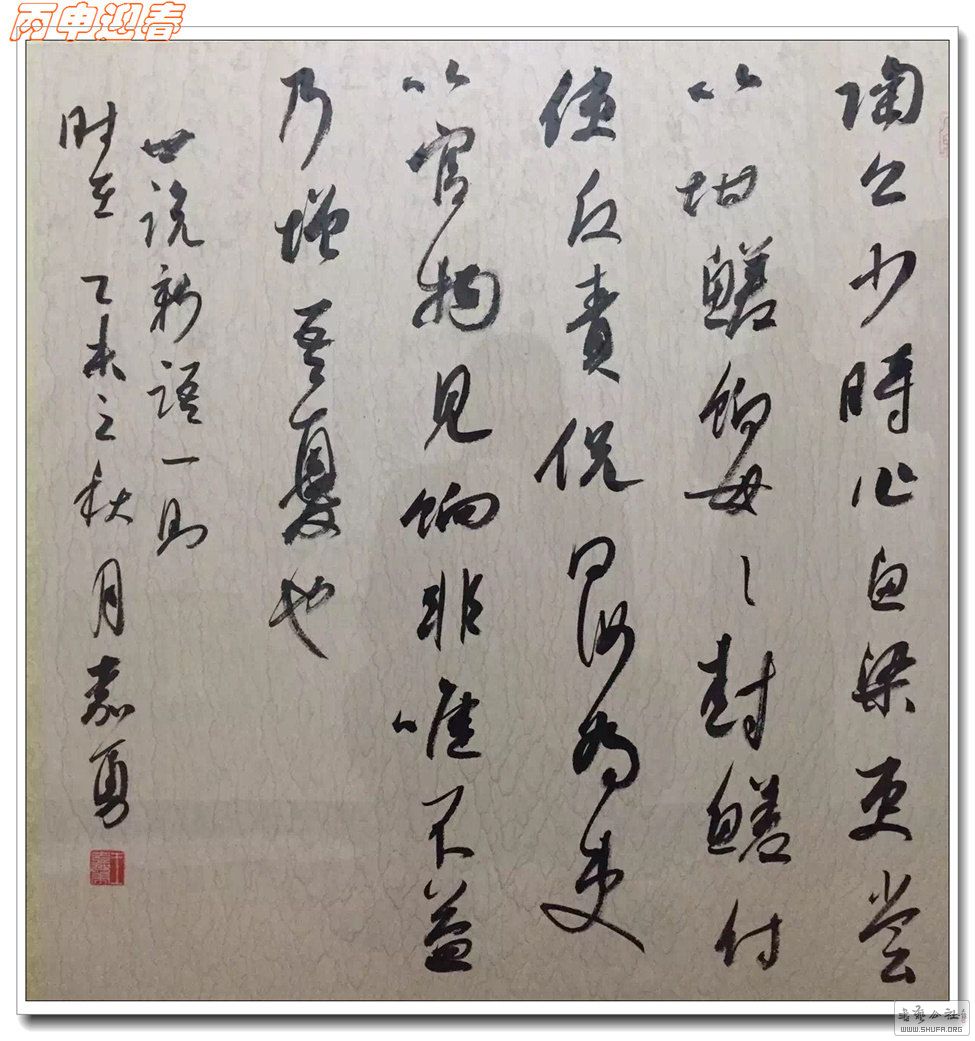 丙申迎春
陶公少時作魚梁吏尝
以坩䱹餉母〻封䱹付
使反責侃曰汝為吏
以官物見餉非唯不益
乃增吾憂也
世说新語一則
时在乙未之秋月嘉勇
书艺公社
WWW.SHUFA.ORG